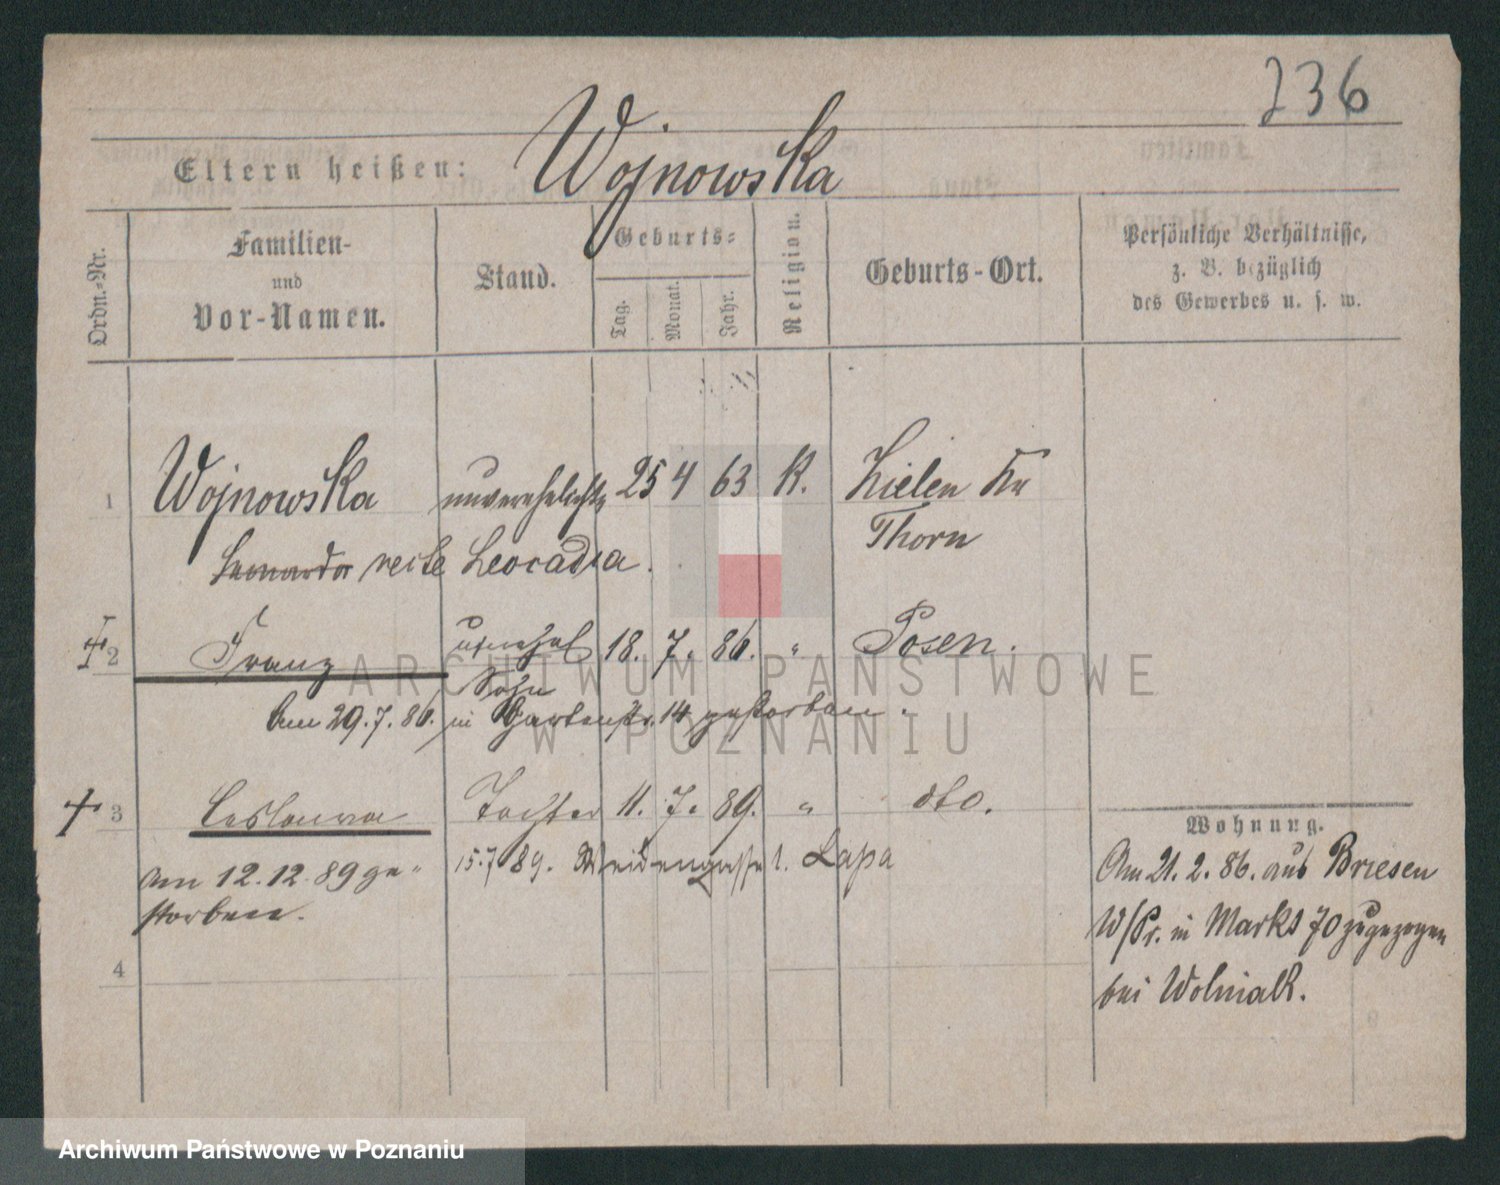 236
Eltern heißen: Wojnowska
Ordn.-Nr.
Familien-
und
Vor-Namen.
Stand.
Geburts-
Tag.
Monat.
Jahr.
Religion.
Geburts-Ort.
Persönliche Verhältnisse,
z. B. bezüglich
des Gewerbes u. s. w.
1 Wojnowska unverehelichte 25 4 63 K. Zielen Kr
Thorn
recte Leocadia.
2 Franz unehel 18. 7. 86. " Posen.
Sohn
Am 29.7.86. in Gartenstr. 14 gestorben.
3 Ceslawa Tochter 11. 7. 89. " dto.
15.7 89. Weidengasse 1. Lapa
Am 12.12.89 ge-
storben.
4
Wohnung.
Am 21.2.86. aus Briesen
W/Pr. in Markt 70 zugezogen
bei Wolniak.
ARCHIWUM PAŃSTWOWE
W POZNANIU
Archiwum Państwowe w Poznaniu